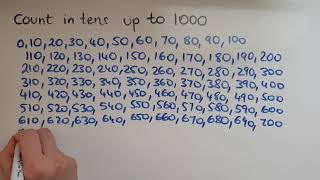 Count in tens up to 1000
0,10,20,30,40,50,60,70,80,90,100
110,120,130,140,150,160,170,180,190,200
210,220,230,240,250,260,270,280,290,300
310,320,330,340,350,360,370,380,390,400
410,420,430,440,450,460,470,480,490,500
510,520,530,540,550,560,570,580,590,600
610,620,630,640,650,660,670,680,690,700